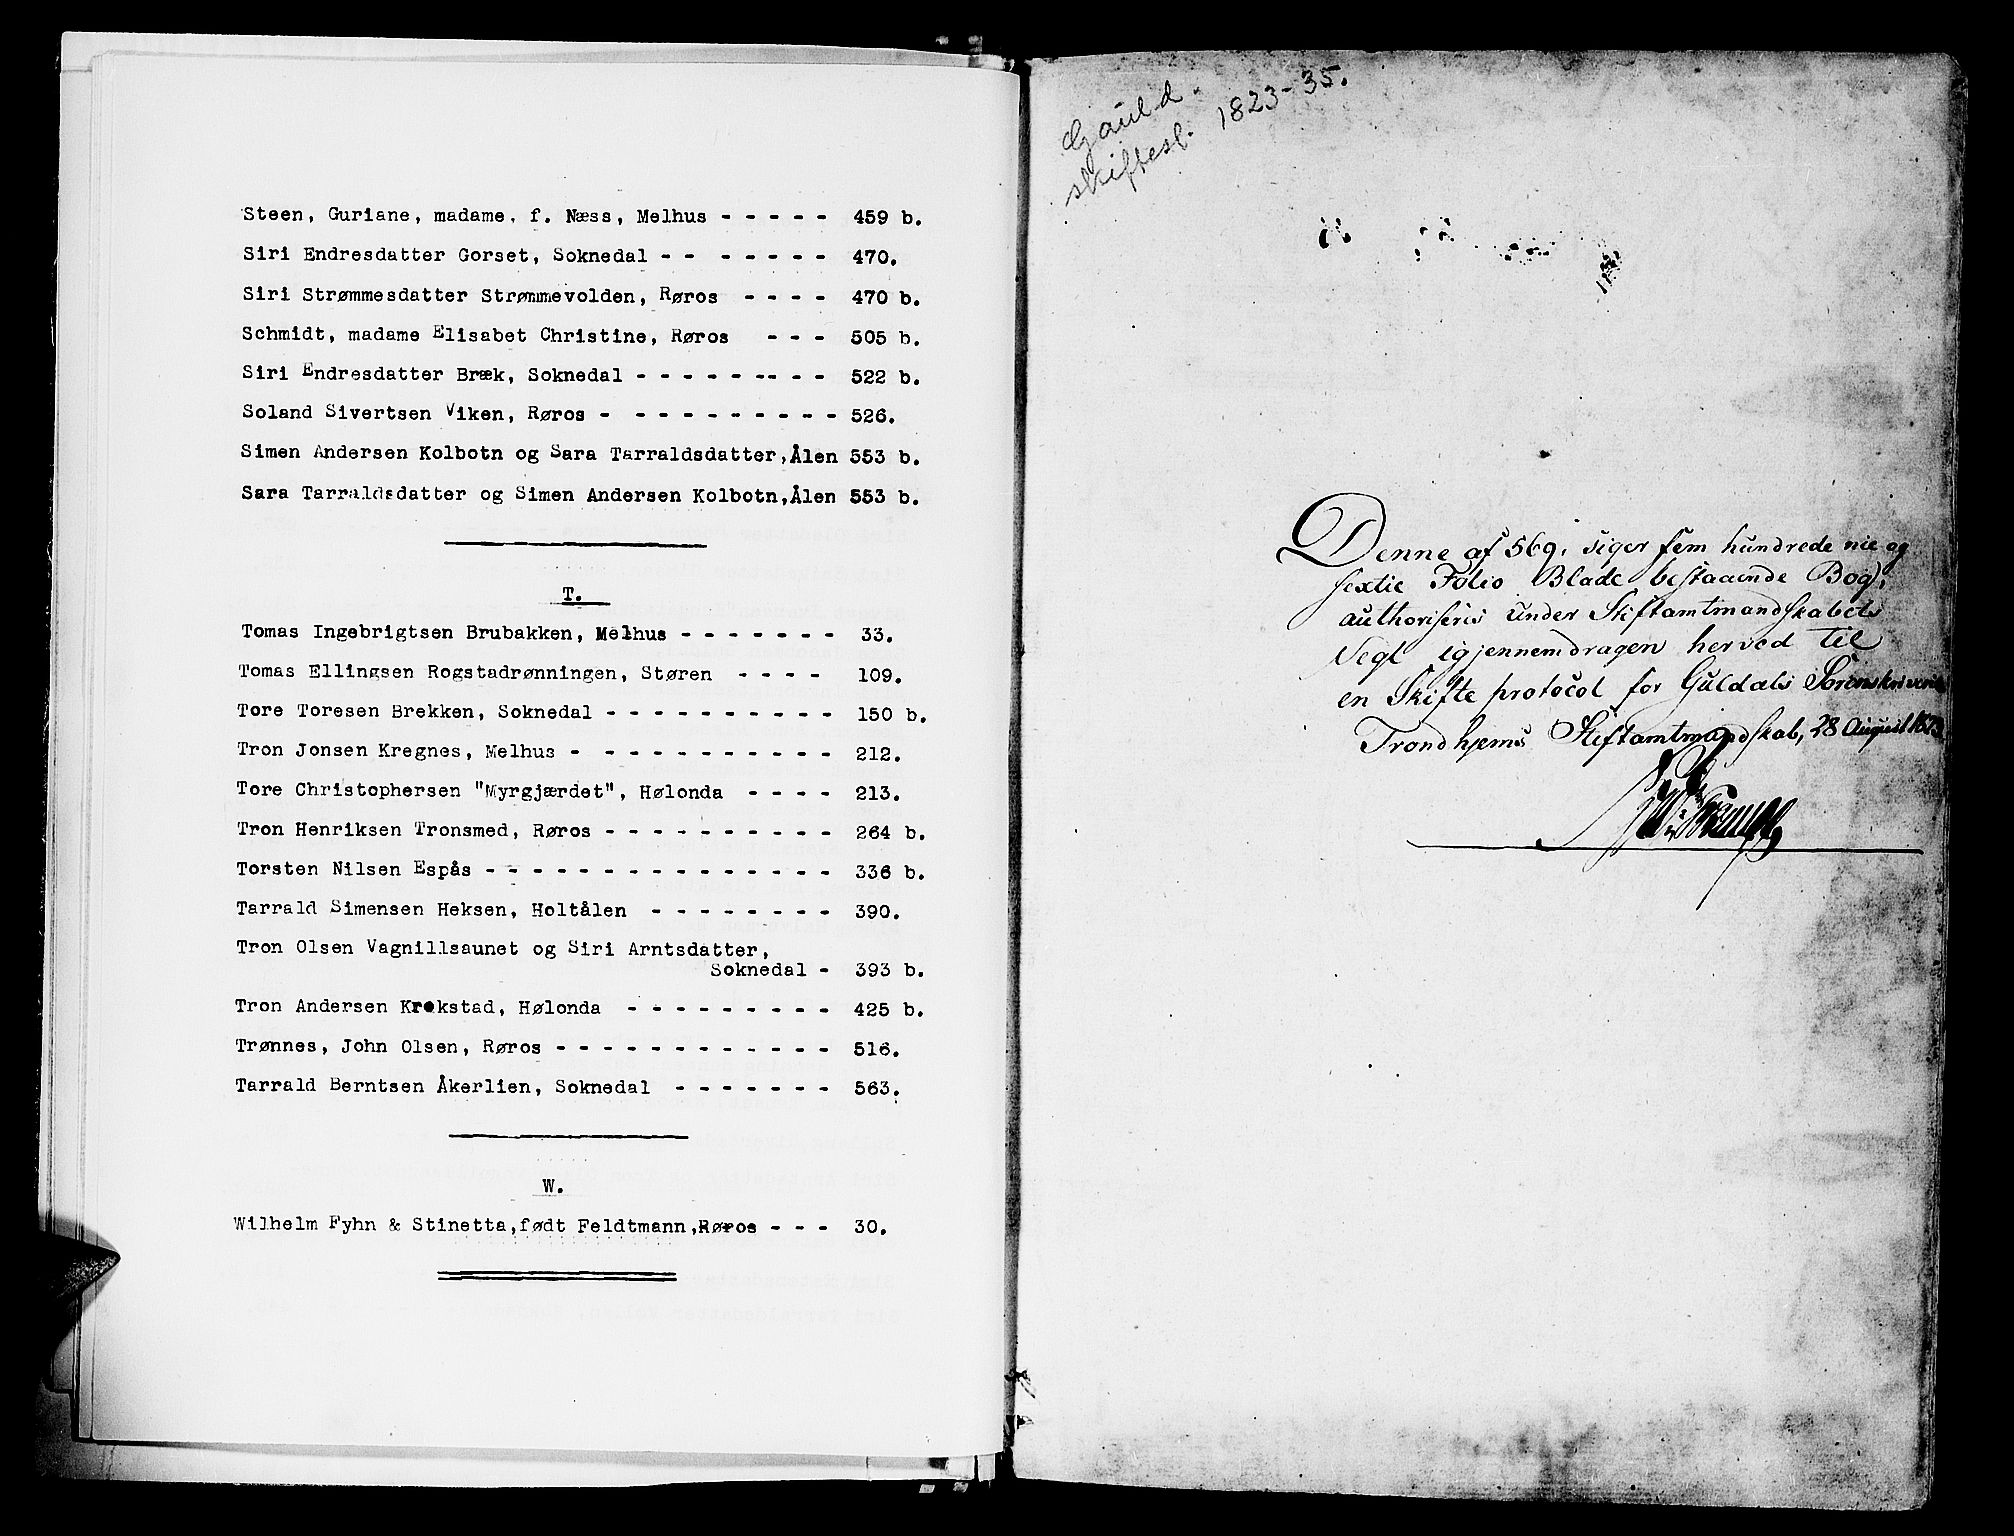 Steen, Guriane, madame, f. Næss, Melhus - - - - - 459 b.
Siri Endresdatter Gorset, Soknedal - - - - - - - 470.
Siri Strømmesdatter Strømmevolden, Røros - - - - 470 b.
Schmidt, madame Elisabet Christine, Røros - - - 505 b.
Siri Endresdatter Bræk, Soknedal - - - - - - - - - 522 b.
Soland Sivertsen Viken, Røros - - - - - - - - - - 526.
Simen Andersen Kolbotn og Sara Tarraldsdatter, Ålen 553 b.
Sara Tarraldsdatter og Simen Andersen Kolbotn, Ålen 553 b.
T.
Tomas Ingebrigtsen Brubakken, Melhus - - - - - - - 33.
Tomas Ellingsen Rogstadrønningen, Støren - - - - 109.
Tore Toresen Brekken, Soknedal - - - - - - - - - - 150 b.
Tron Jonsen Kregnes, Melhus - - - - - - - - - - 212.
Tore Christophersen "Myrgjærdet", Hølonda - - - - 213.
Tron Henriksen Tronsmed, Røros - - - - - - - - - - 264 b.
Torsten Nilsen Espås - - - - - - - - - - - - - - - 336 b.
Tarrald Simensen Heksen, Holtålen - - - - - - - - 390.
Tron Olsen Vagnillsaunet og Siri Arntsdatter,
Soknedal - 393 b.
Tron Andersen Krokstad, Hølonda - - - - - - - - - 425 b.
Trønnes, John Olsen, Røros - - - - - - - - - - - - 516.
Tarrald Berntsen Åkerlien, Soknedal - - - - - - - 563.
W.
Wilhelm Fyhn & Stinetta, født Feldtmann, Røros - - - 30.
Gauld.
skiftesl. 1823-35.
Denne af 569, siger fem hundrede nie og
sextie Folio Blade bestaaende Bog,
authoriseris under Stiftamtmandskabets
Segl igjennemdragen herved til
en Skifte protocol for Guldals Sorenskriverie
Trondhjems Stiftamtmandskab, 28 August 1823